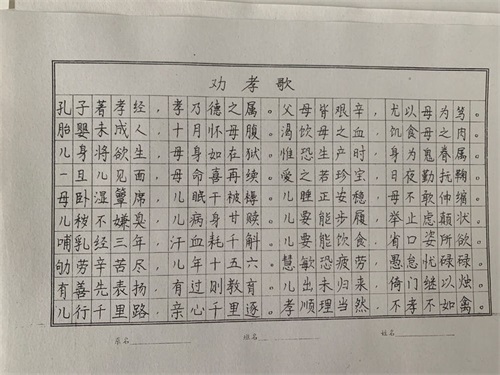 劝孝歌
孔子著孝经,孝乃德之属。父母皆艰辛,尤以母为笃。
胎婴未成人,十月怀母腹。渴饮母之血,饥食母之肉。
儿身将欲生,母身如在狱。惟恐生产时,身为鬼眷属。
一旦儿见面,母命喜再续。爱之若珍宝,日夜勤托鞠。
母卧湿簟席,儿眠干被褥。儿睡正安稳,母不敢伸缩。
儿秽不嫌臭,儿病身甘赎。儿要能步履,举止虑颠状。
哺乳经三年,汗血耗千斛。儿要能饮食,省口姿所欲。
劬劳辛苦尽,儿年十五六。慧敏恐疲劳,愚怠忧碌碌。
有善先表扬,有过则教育。儿出未归来,倚门继以烛。
儿行千里路,亲心千里逐。孝顺理当然,不孝不如禽。
系名 班名 姓名